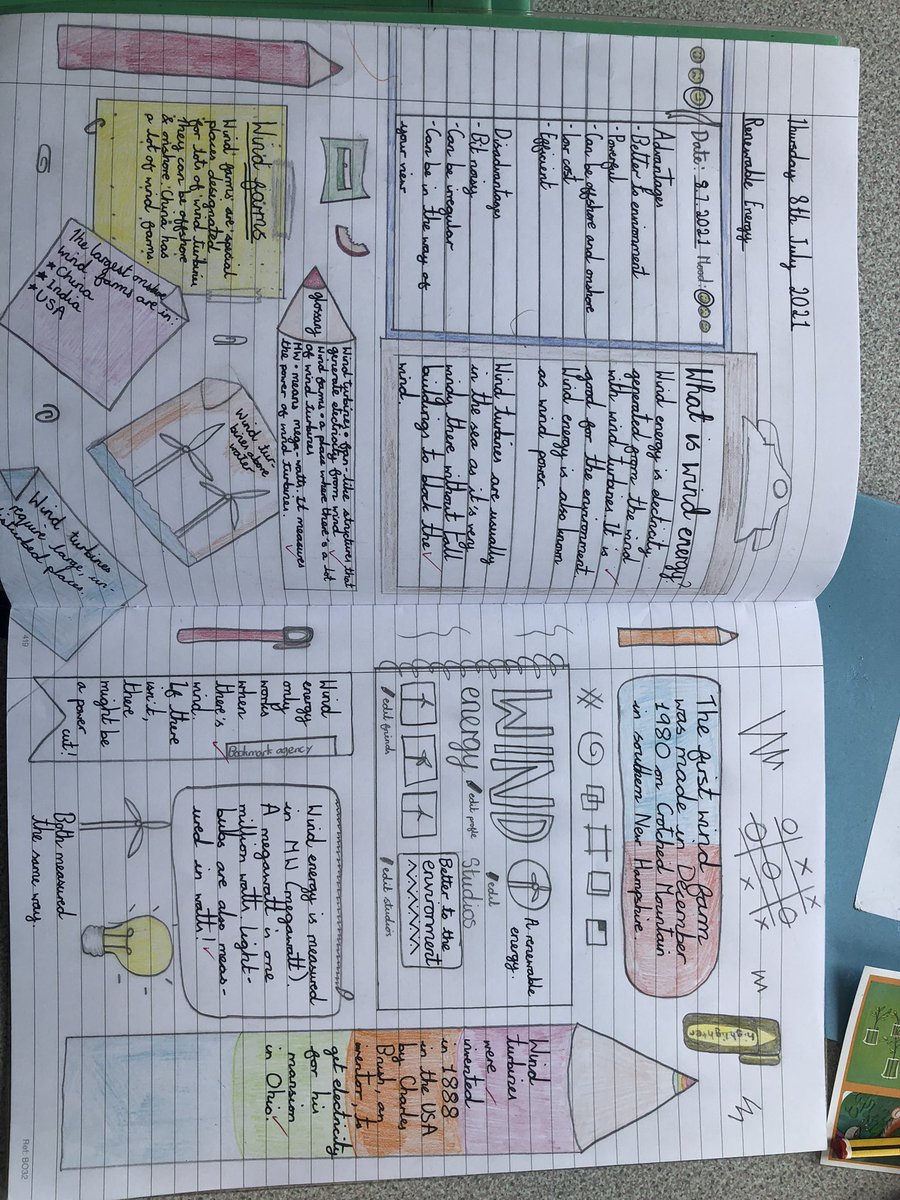 Thursday 8th July 2021
Renewable Energy
Date: 8.7.2021 Mood:
Advantages
- Better to environment
- Powerful
- Can be offshore and onshore
- Low cost
- Efficient
Disadvantages
- Bit noisy
- Can be irregular
- Can be in the way of
your view
What is wind energy?
Wind energy is electricity
generated from the wind
with wind turbines. It is
good for the environment
Wind energy is also known
as wind power.
Wind turbines are usually
in the sea as it's very
windy there without tall
buildings to block the
wind.
Wind farms
Wind farms are special
places designated
for lots of wind turbines
They can be offshore
& onshore. China has
a lot of wind farms.
glossary
Wind turbines • fan-like structures that
generate electricity from wind
Wind farms • a place where there's a lot
of wind turbines
MW • means mega-watts. It measures
the power of wind turbines.
The largest onshore
wind farms are in:
★ China
★ India
★ USA
Wind tur-
bines above
water
Wind turbines
require large,
places.
419
The first wind farm
was made in December
1980 on Crotched Mountain
in southern New Hampshire.
highlighter
WIND
A renewable
energy.
edit
energy
edit profile
Studios
Better to the
environment
edit friends
edit studios
Wind
energy
only
works
when
there's
wind.
If there
isn't,
there
might be
a power
cut!
Bookmark agency
Wind energy is measured
in MW (megawatt).
A megawatt is one
million watts. Light-
bulbs are also meas-
ured in watts!
Both measured
the same way.
Wind
turbines
were
invented
in 1888
in the USA
by Charles
Brush, an
inventor, to
get electricity
for his
mansion
in Ohio.
Ref: BO32